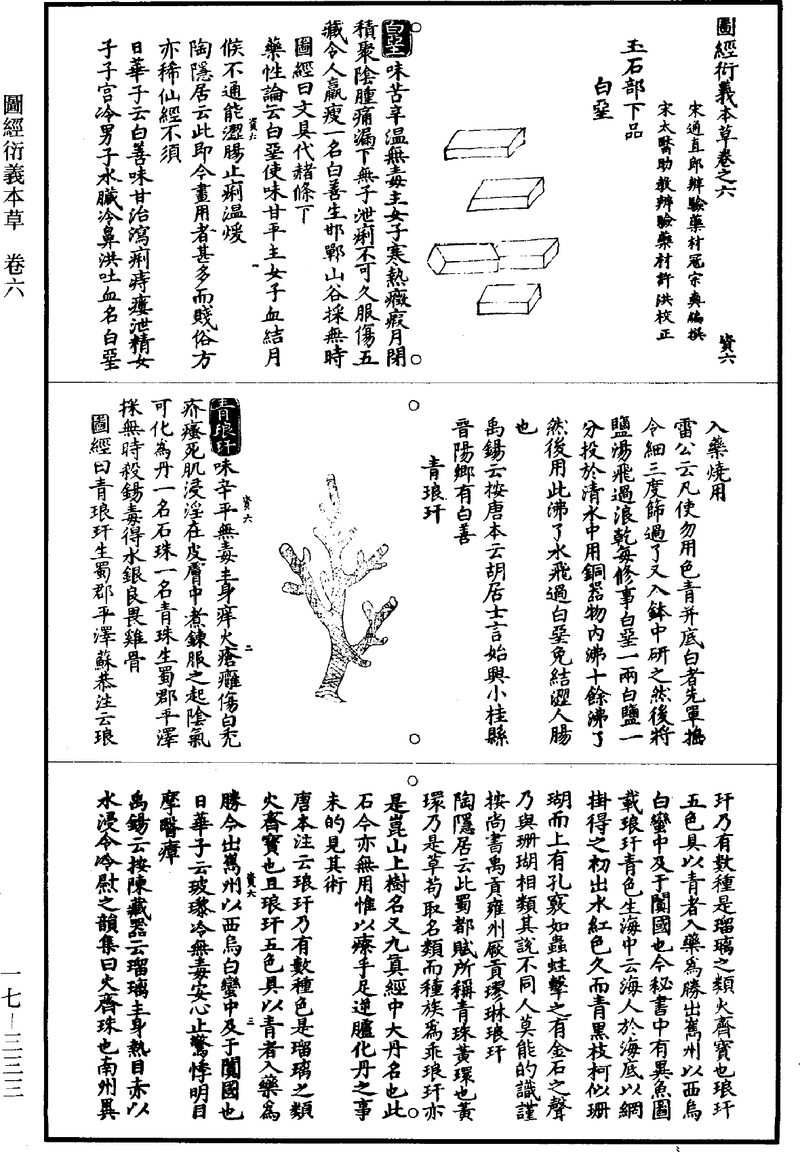 圖經衍義本草卷之六
資六
宋通直郎辨驗藥材寇宗奭編撰
宋太醫助教辨驗藥材許洪校正
玉石部下品
白堊
白堊味苦辛溫無毒主女子寒熱癥瘕月閉
積聚陰腫痛漏下無子泄痢不可久服傷五
藏令人羸瘦一名白善生邯鄲山谷採無時
圖經曰文具代赭條下
資六
藥性論云白堊使味甘平主女子血結月
候不通能澀腸止痢溫煖
陶隱居云此即今畫用者甚多而賤俗方
亦稀仙經不須
日華子云白善味甘治瀉痢痔瘻泄精女
子子宮冷男子水臟冷鼻洪吐血名白堊
入藥燒用
雷公云凡使勿用色青并底白者先單擣
令細三度篩過了又入鉢中研之然後將
鹽湯飛過浪乾每修事白堊一兩白鹽一
分投於清水中用銅器物內沸十餘沸了
然後用此沸了水飛過白堊免結澀人腸
也
禹錫云按唐本云胡居士言始興小桂縣
晉陽鄉有白善
青琅玕
青琅玕味辛平無毒主身痒火瘡癰傷白禿
資六
二
疥瘙死肌浸淫在皮膚中煮鍊服之起陰氣
可化為丹一名石珠一名青珠生蜀郡平澤
採無時殺錫毒得水銀良畏雞骨
圖經曰青琅玕生蜀郡平澤蘇恭注云琅
玕乃有數種是瑠璃之類火齊寶也琅玕
五色具以青者入藥為勝出嶲州以西烏
白蠻中及于闐國也今秘書中有異魚圖
載琅玕青色生海中云海人於海底以網
掛得之初出水紅色久而青黑枝柯似珊
瑚而上有孔竅如蟲蛀擊之有金石之聲
乃與珊瑚相類其說不同人莫能的識謹
按尚書禹貢雍州厥貢璆琳琅玕
陶隱居云此蜀都賦所稱青珠黃環也黃
環乃是草苟取名類而種族為乖琅玕亦
是崑山上樹名又九真經中大丹名也此
石今亦無用惟以療手足逆臚化丹之事
未的見其術
唐本注云琅玕乃有數種色是瑠璃之類
火齊寶也且琅玕五色具以青者入藥為
資六
三
勝今出嶲州以西烏白蠻中及于闐國也
日華子云玻瓈冷無毒安心止驚悸明目
摩瞖瘴
禹錫云按陳藏器云瑠璃主身熱目赤以
水浸令冷慰之韻集曰火齊珠也南州異
圖經衍義本草　卷六
一七—三三三